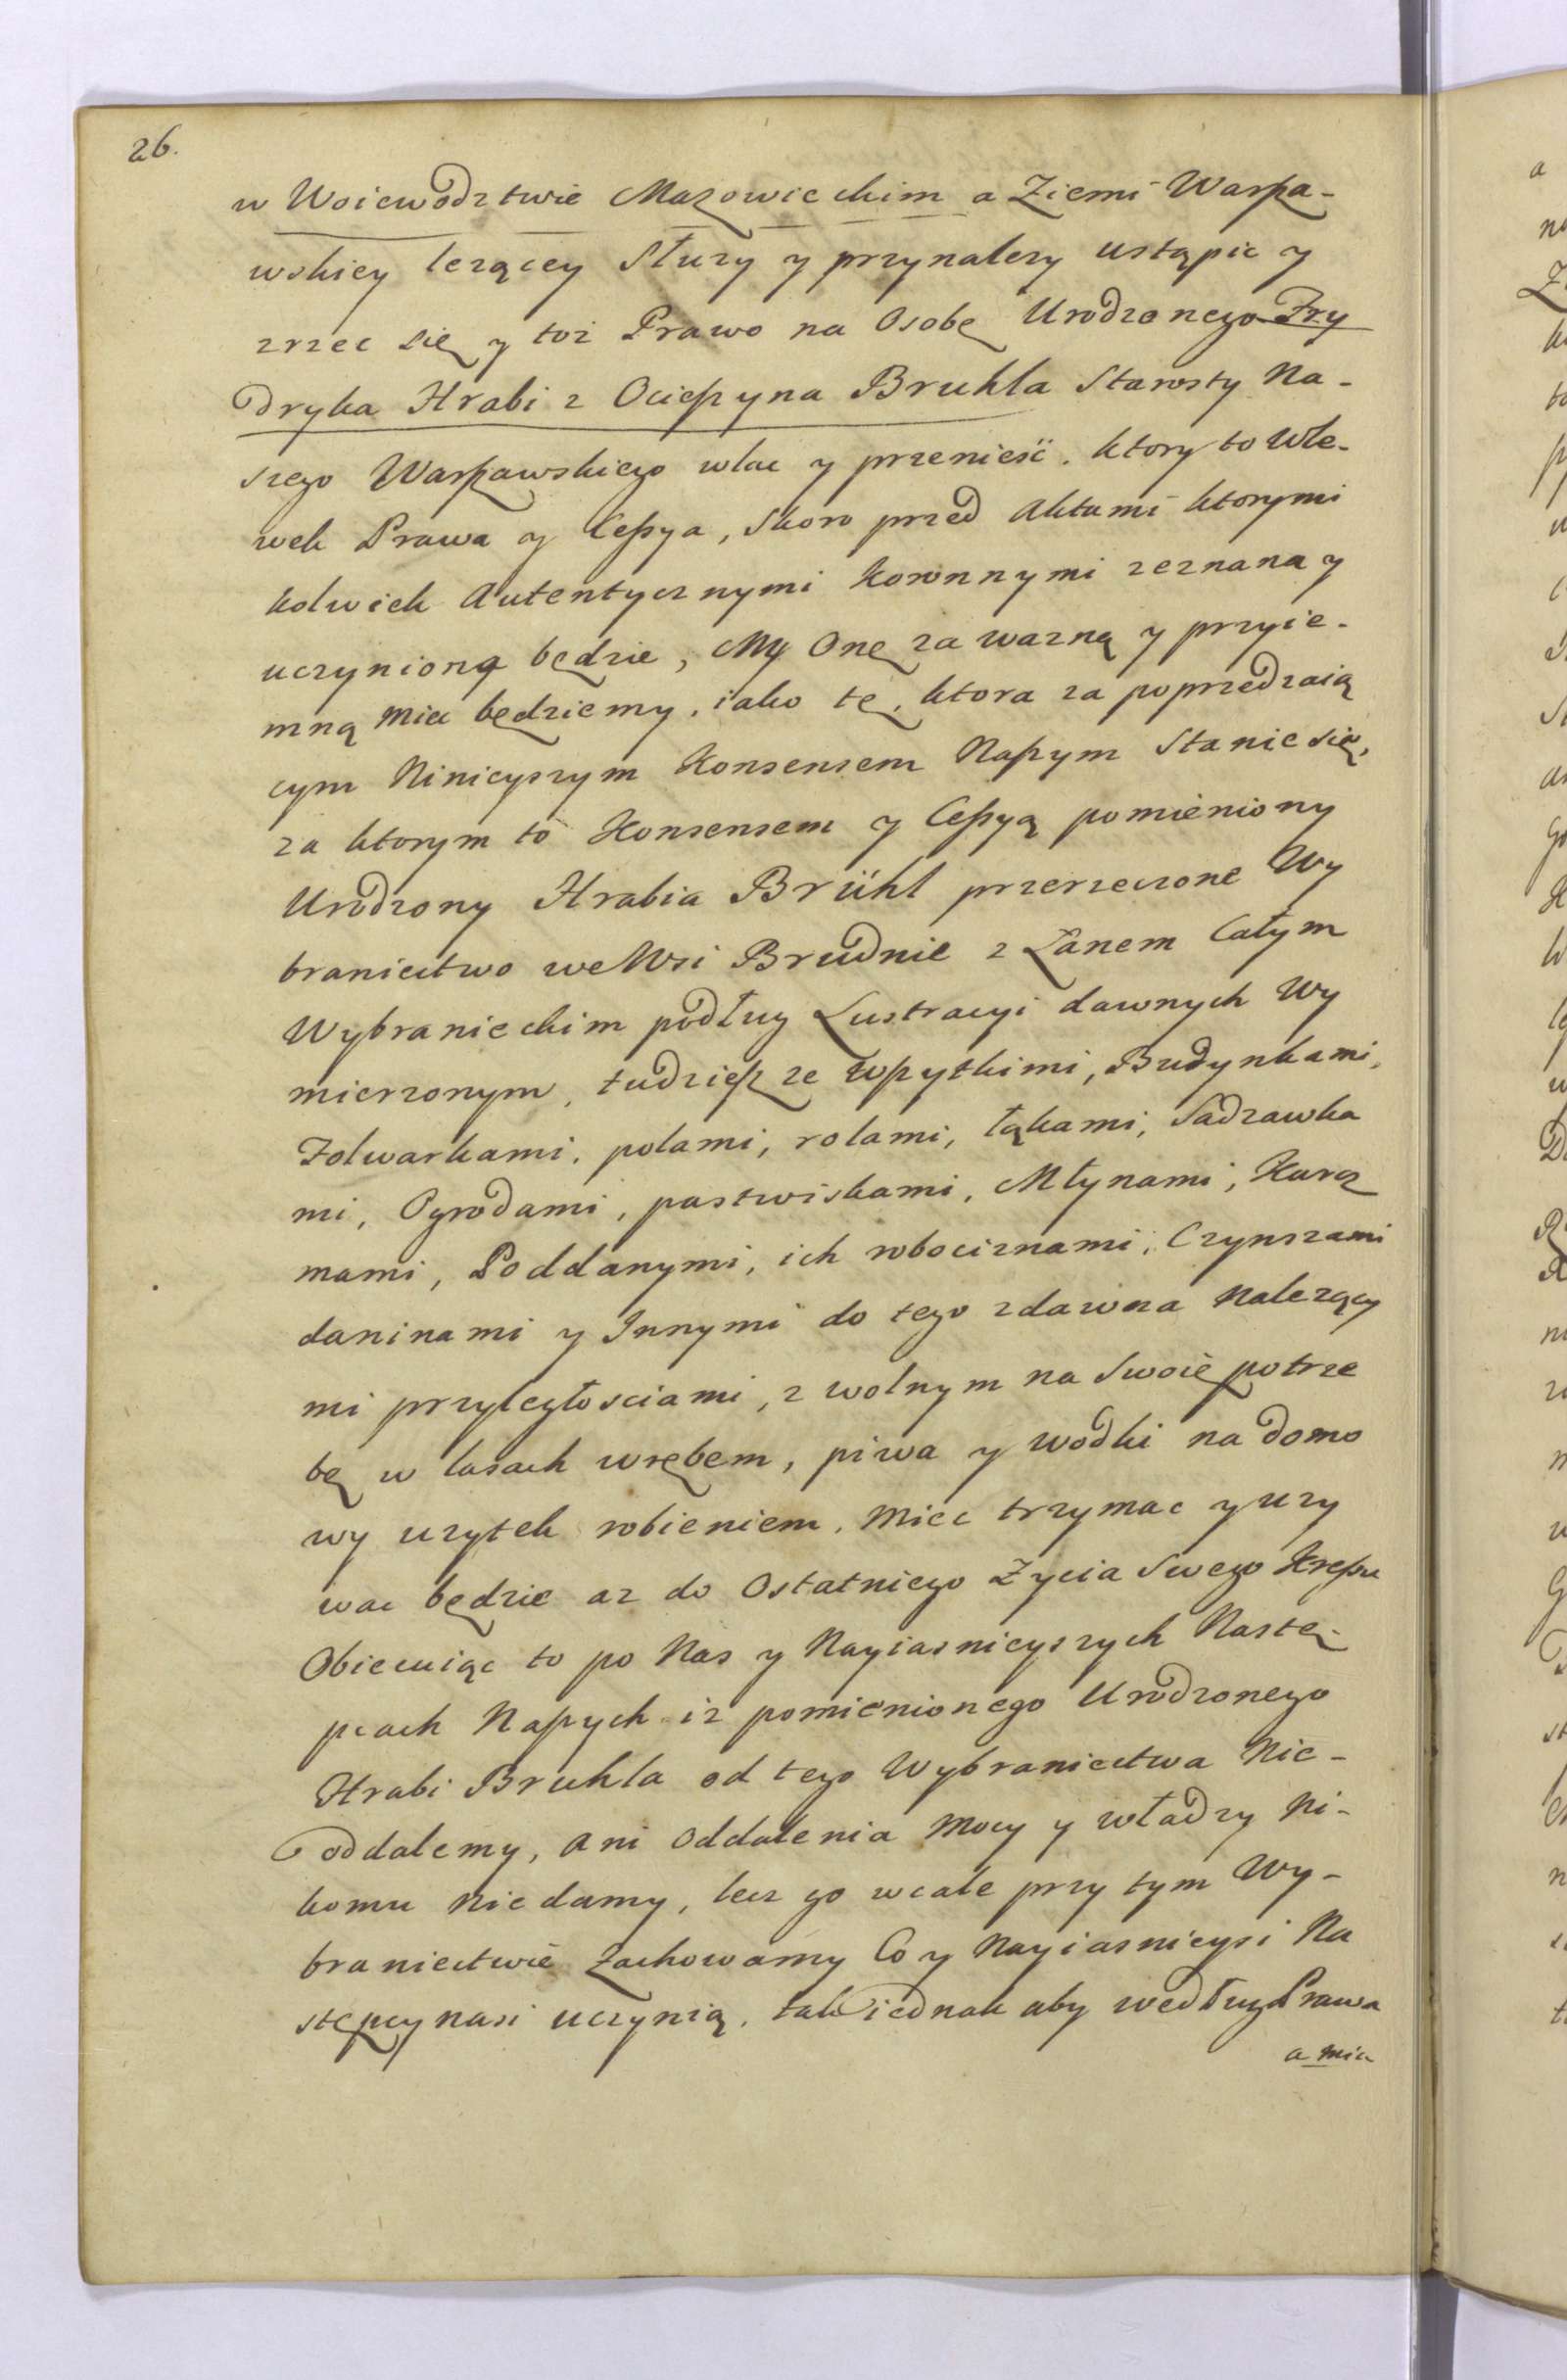 26.
w Woiewodztwie Mazowieckim a Ziemi Warsza-
wskiey lezącey Słuzy y przynalezy ustąpic y
zrzec się y toż Prawo na Osobę Urodzonego Fry
dryka Hrabi z Ocieszyna Bruhla Starosty Na-
szego Warszawskiego wlac y przenieść. ktory to Wle-
wek Prawa y Cessya, skoro przed Aktami ktorymi
kolwiek Autentycznymi Koronnymi zeznana y
uczynioną będzie, My Onę za wazną y przyie-
mną miec będziemy, iako tę, ktora za poprzedzaią
cym Ninieyszym Konsensem Naszym Stanie się,
za ktorym to Konsensem y Cessyą pomieniony
Urodzony Hrabia Brühl przerzeczone Wy
braniectwo we Wsi Brudnie z Łanem Całym
Wybranieckim podług Lustracyi dawnych Wy
mierzonym, tudziesz ze wszytkimi, Budynkami,
Folwarkami, polami, rolami, łąkami, Sadzawka
mi, Ogrodami, pastwiskami, Młynami, Karcz
mami, Poddanymi, ich robociznami, Czynszami
daninami y Innymi do tego zdawna Nalezący
mi przyległosciami, z wolnym na Swoie potrze
bę w lasach wrębem, piwa y wodki na domo
wy uzytek robieniem, Miec trzymac y uzy
wac będzie az do Ostatniego Zycia Swego Kressu
Obiecuiąc to po Nas y Nayiasnieyszych Nastę-
pcach Naszych iz pomienionego Urodzonego
Hrabi Bruhla od tego Wybraniectwa Nie-
oddalemy, Ani Oddalenia Mocy y władzy Ni-
komu Nie damy, lecz go wcale przy tym Wy-
braniectwie Zachowamy Co y Nayiasnieysi Na
stępcy nasi uczynią, tak iednak aby według Prawa
a miec